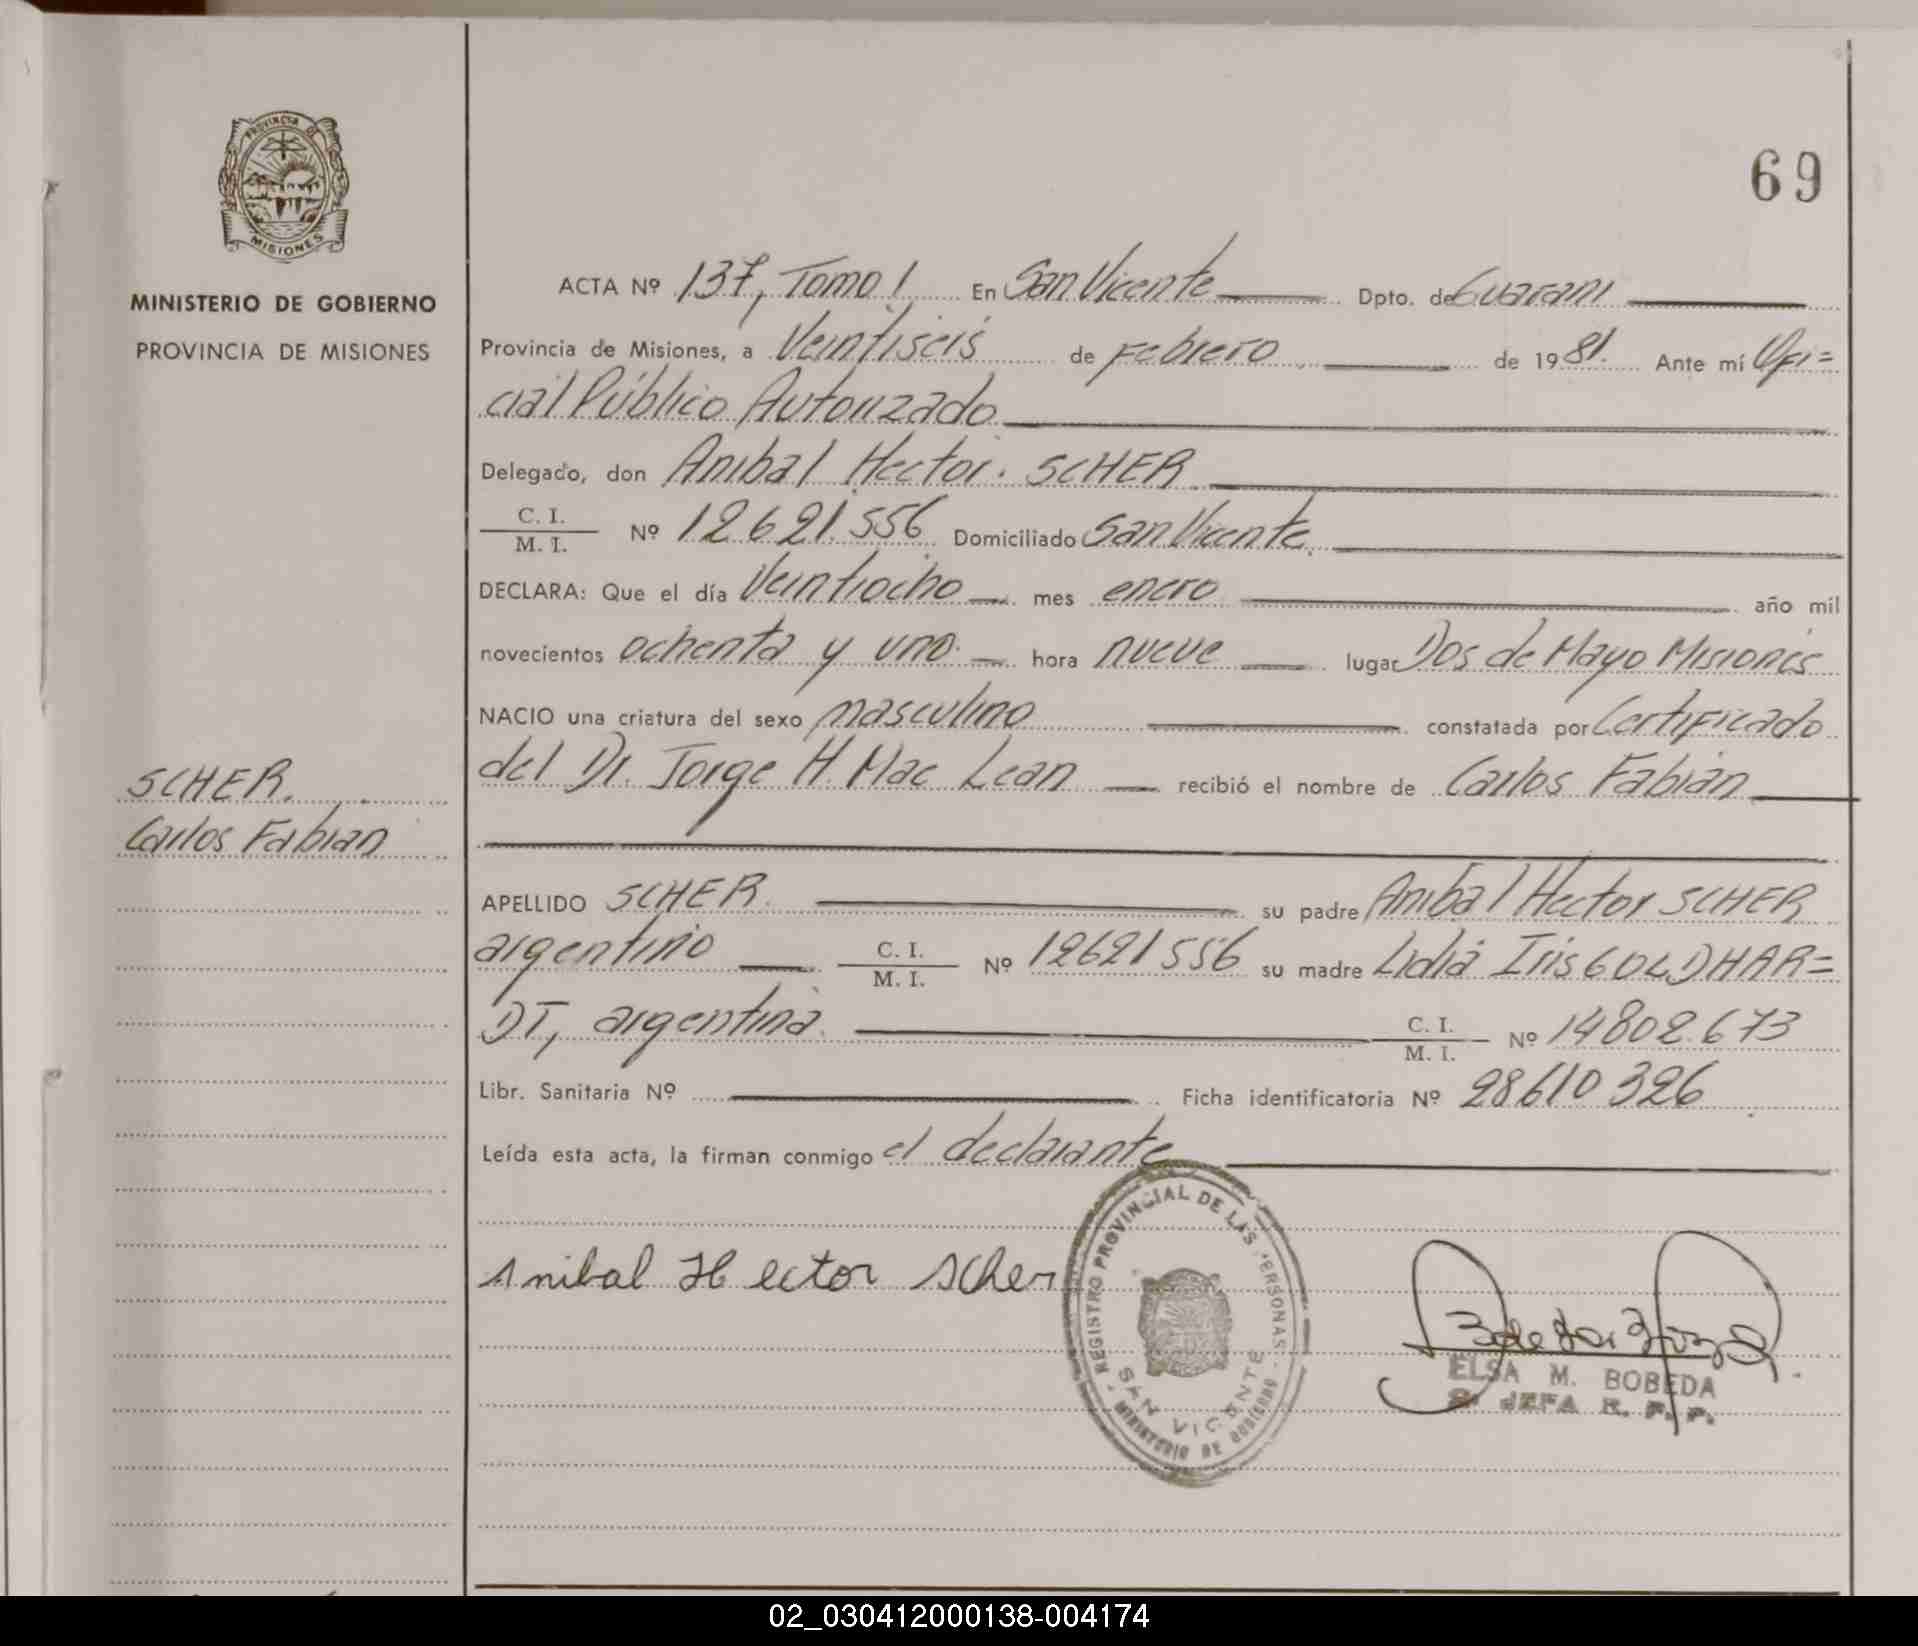 69
PROVINCIA DE
MISIONES
MINISTERIO DE GOBIERNO
PROVINCIA DE MISIONES
ACTA Nº 137, Tomo I En San Vicente Dpto. de Guarani
Provincia de Misiones, a Veintiseis de Febrero de 1981. Ante mí Ofi=
cial Público Autorizado
Delegado, don Anibal Hector SCHER
C. I.
M. I. Nº 12621.556 Domiciliado San Vicente
DECLARA: Que el día Veintiocho mes enero año mil
novecientos ochenta y uno hora nueve lugar Dos de Mayo Misiones
NACIO una criatura del sexo masculino constatada por Certificado
del Dr. Jorge H. Mac Lean recibió el nombre de Carlos Fabián
SCHER.
Carlos Fabian
APELLIDO SCHER. su padre Anibal Hector SCHER
argentino C. I.
M. I. Nº 12621556 su madre Lidia Iris GOLDHAR=
DT, argentina. C. I.
M. I. Nº 14802.673
Libr. Sanitaria Nº Ficha identificatoria Nº 28610326
Leída esta acta, la firman conmigo el declarante
Anibal Hector Scher
REGISTRO PROVINCIAL DE LAS PERSONAS
SAN VICENTE
MINISTERIO DE GOBIERNO
ELSA M. BOBEDA
JEFA R. P. P.
02_030412000138-004174